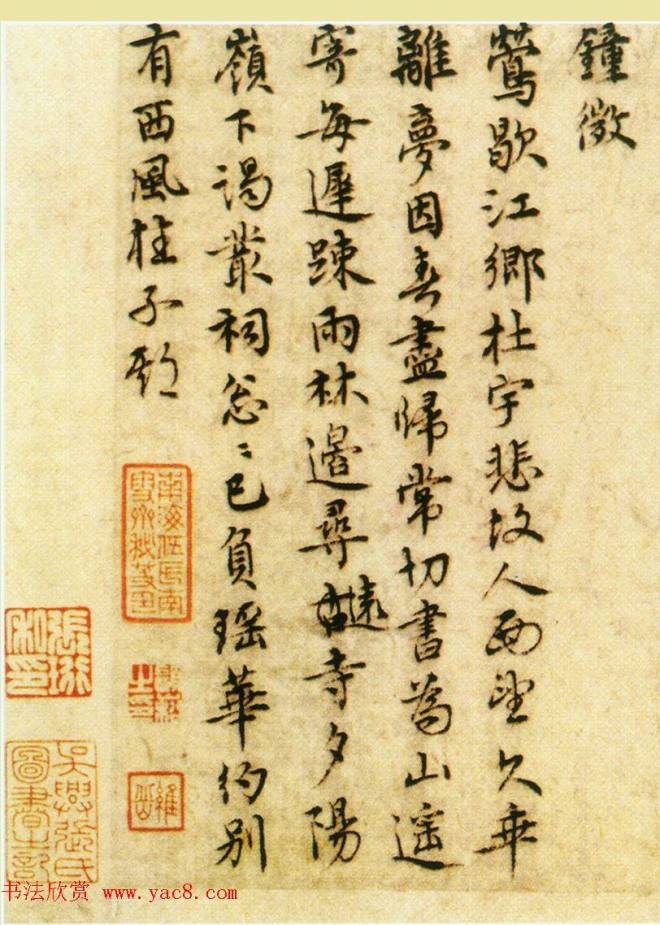 鐘微
鶯歇江鄉杜宇悲故人西望久乖
離夢因春盡歸常切書為山遥
寄每遲踈雨林邉尋遠寺夕陽
嶺下謁叢祠忩〻已負瑤華約別
有西風桂子期
南海伍氏南雪齋秘笈印
張珩私印
吳興張氏圖書之記
书法欣赏 www.yac8.com